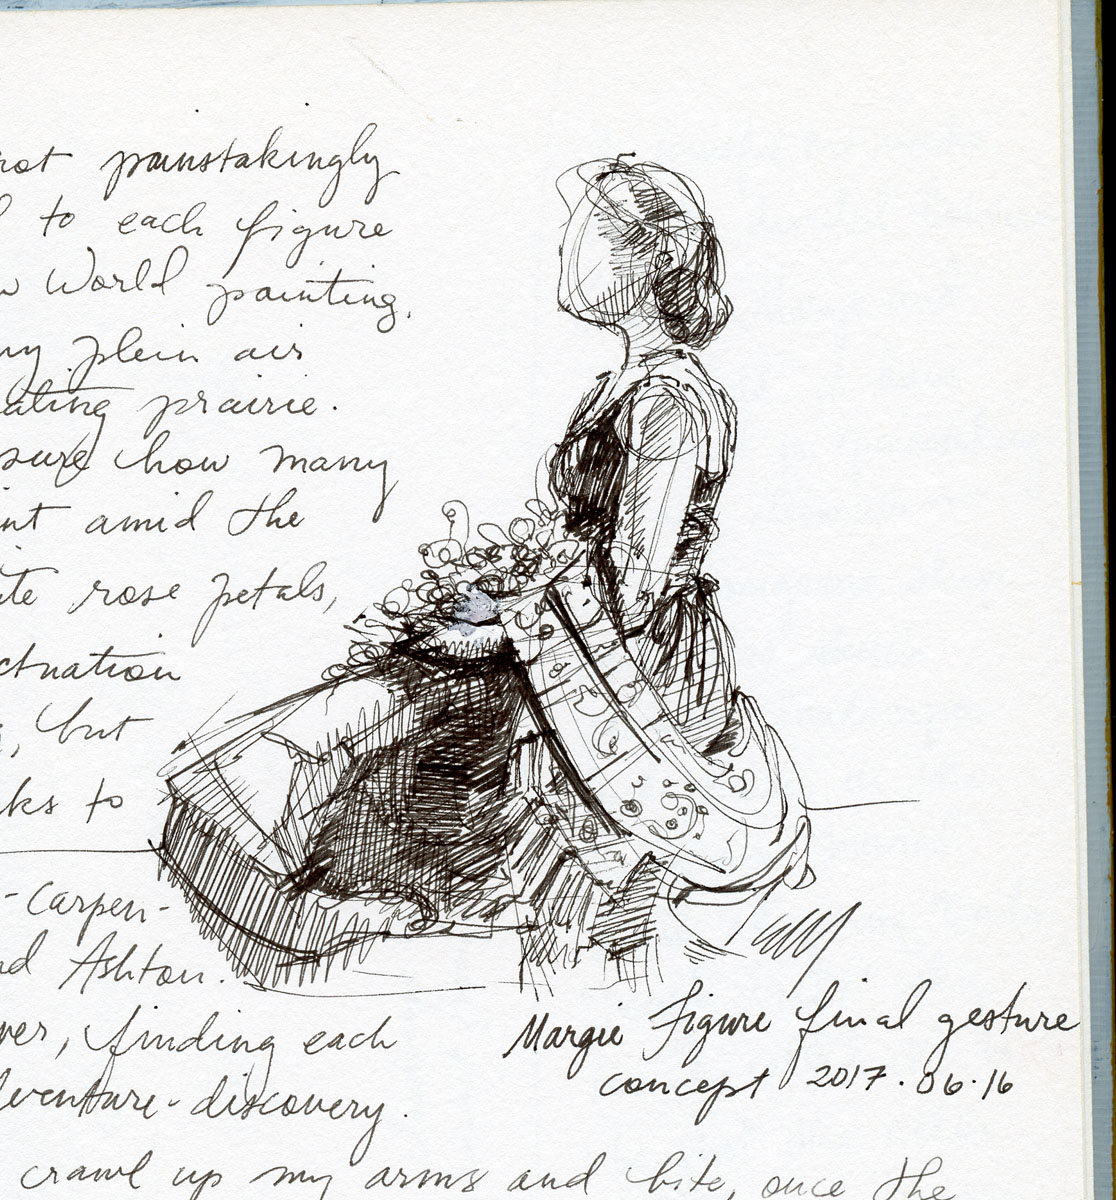 not painstakingly
to each figure
World painting.
my plein air
ating prairie.
sure how many
int amid the
ite rose petals,
ctuation
, but
ks to
-carpen-
nd Ashton.
ver, finding each
dventure-discovery.
crawl up my arms and bite, once the
Margie Figure final gesture
concept 2017.06.16